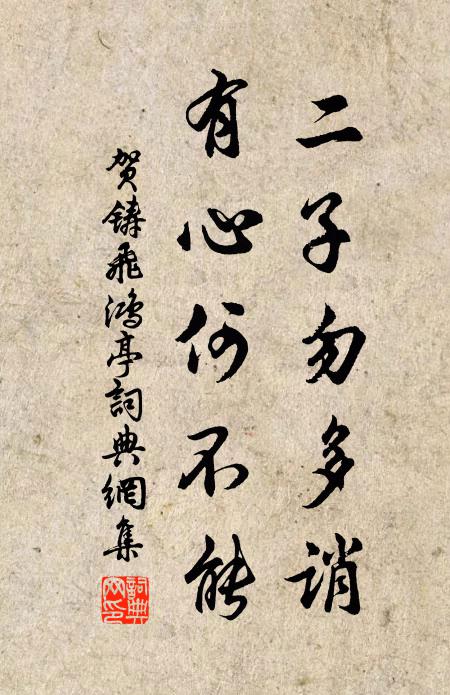 二子勿多誚
有心何不能
贺鑄飛鴻亭詞典網集
詞典網印